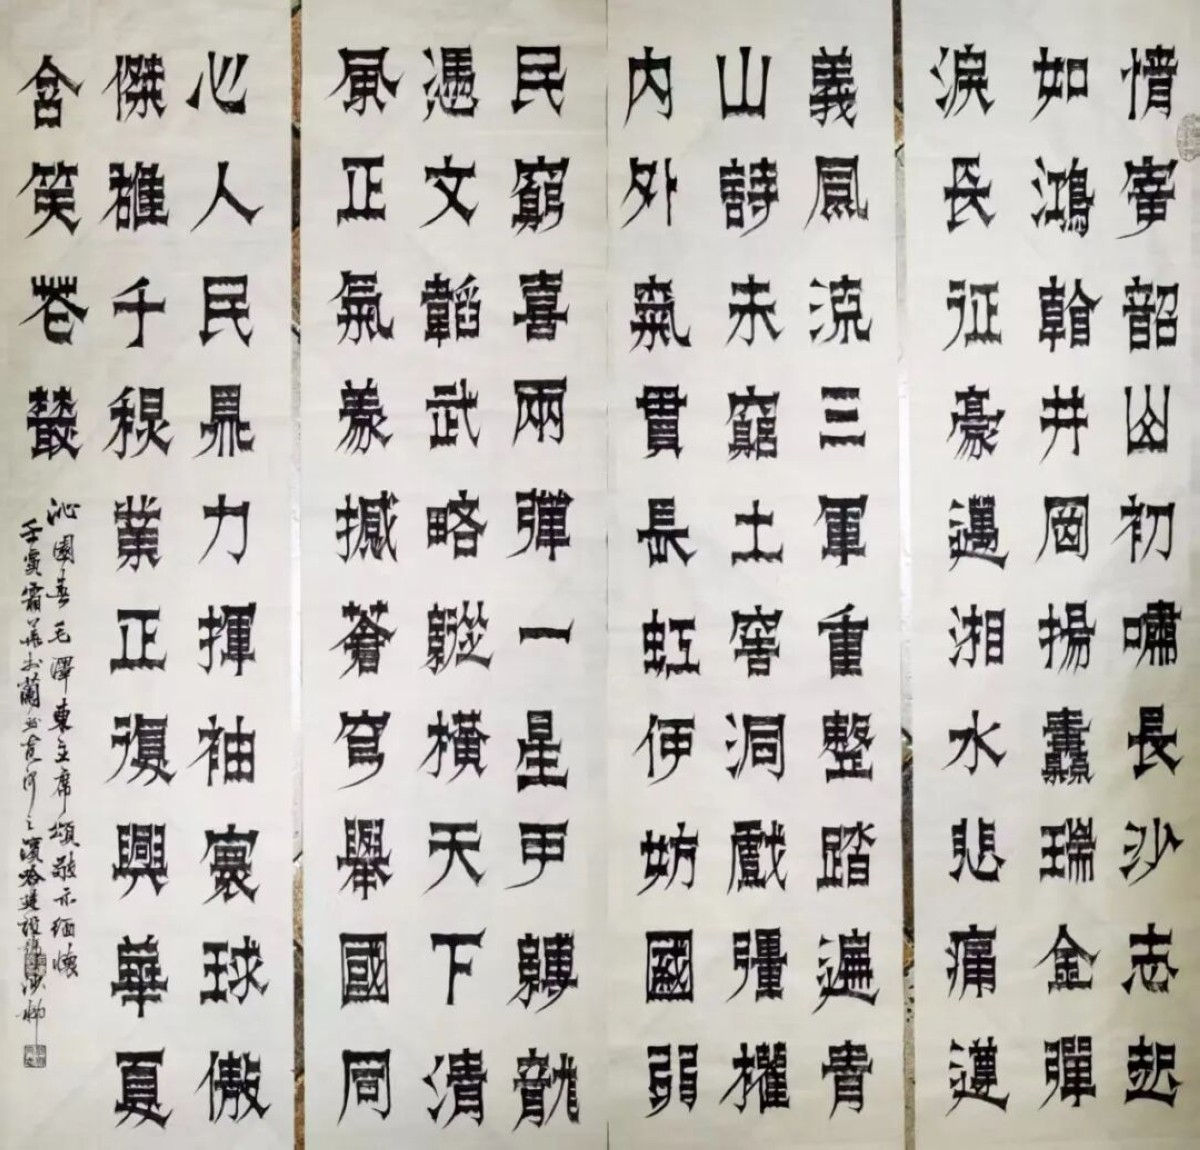 惜寅韶山初嘯長沙志起
如鴻幹井岡揚纛瑞金彈
淚長征豪邁湘水悲痛遵
義鳳流三軍重整踏遍貴
山詩未竄土窖洞戲彊權
内外氣貫長虹伊始國弱
民窮喜兩彈一星甲轉乾
憑文韜武略縱橫天下清
風正氣義撼蒼穹舉國同
心人民鼎力揮袖寰球傲
傑雄千穩業正復興華夏
含笑卷叢
沁園春毛澤東主席頌敬示緬懷